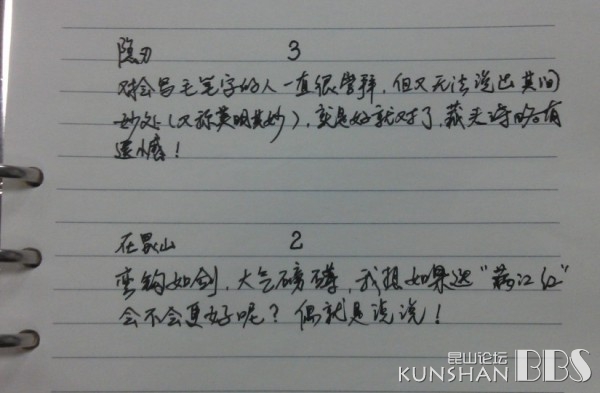 隐刃 3
对会写毛笔字的人一直很崇拜，但又无法说出其间
妙处（又称莫明其妙），就是好就对了，藏头诗略有
遗憾！
在昆山 2
弯钩如剑，大气磅礴，我想如果选“满江红”
会不会更好呢？偶就是说说！
昆山论坛
KUNSHAN BBS